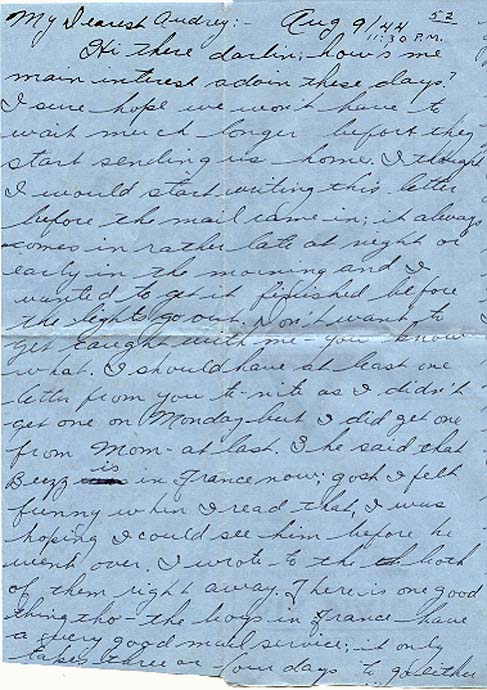 My Dearest Audrey:- Aug 9/44 52
11:30 P.M.
Hi there darlin; how's me
main interest adoin these days?
I sure hope we won't have to
wait much longer before they
start sending us home. I thought
I would start writing this letter
before the mail came in; it always
comes in rather late at night or
early in the morning and I
wanted to get it finished before
the lights go out. Don't want to
get caught with me - you know
what. I should have at least one
letter from you to-nite as I didn't
get one on Monday but I did get one
from Mom - at last. She said that
Buzz is in France now; gosh I felt
funny when I read that, I was
hoping I could see him before he
went over. I wrote to the both
of them right away. There is one good
thing tho - the boys in France have
a very good mail service; it only
takes three or four days to go either